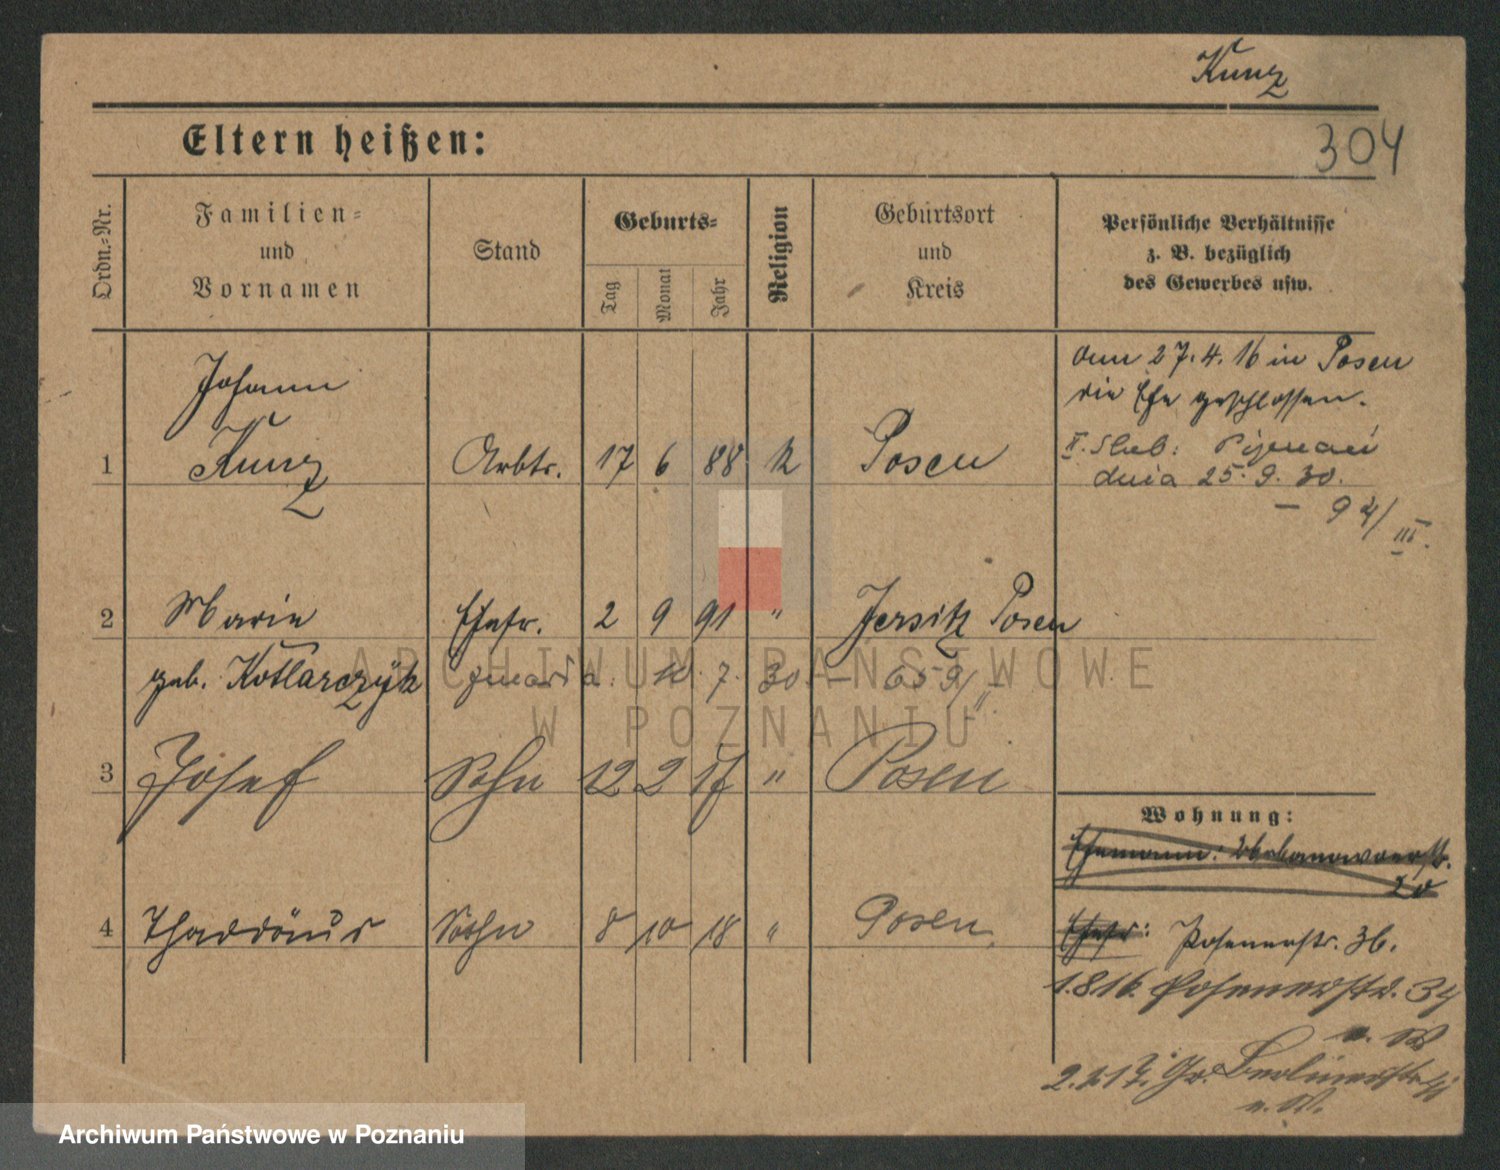 Kunz
304
Eltern heißen:
Ordn.-Nr.
Familien-
und
Vornamen
Stand
Geburts-
Tag
Monat
Jahr
Religion
Geburtsort
und
Kreis
Persönliche Verhältnisse
z. B. bezüglich
des Gewerbes usw.
1 Johann
Kunz Arbtr. 17 6 88 k Posen
am 27.4.16 in Posen
die Ehe geschlossen.
II. Slub:
dnia 25.9.30.
2 Marie Ehefr. 2 9 91 " Jersitz Posen
geb. Kotlarczyk zmarła 10.7.30
3 Josef Sohn 12 2 17 " Posen
4 Thaddäus Sohn 8 10 18 " Posen.
Wohnung:
Ehemann:
20
Ehefr: Posenerstr. 36.
1.8.16 Posenerstr. 34
Gr. Berlinerstr.
ARCHIWUM PAŃSTWOWE
W POZNANIU
Archiwum Państwowe w Poznaniu